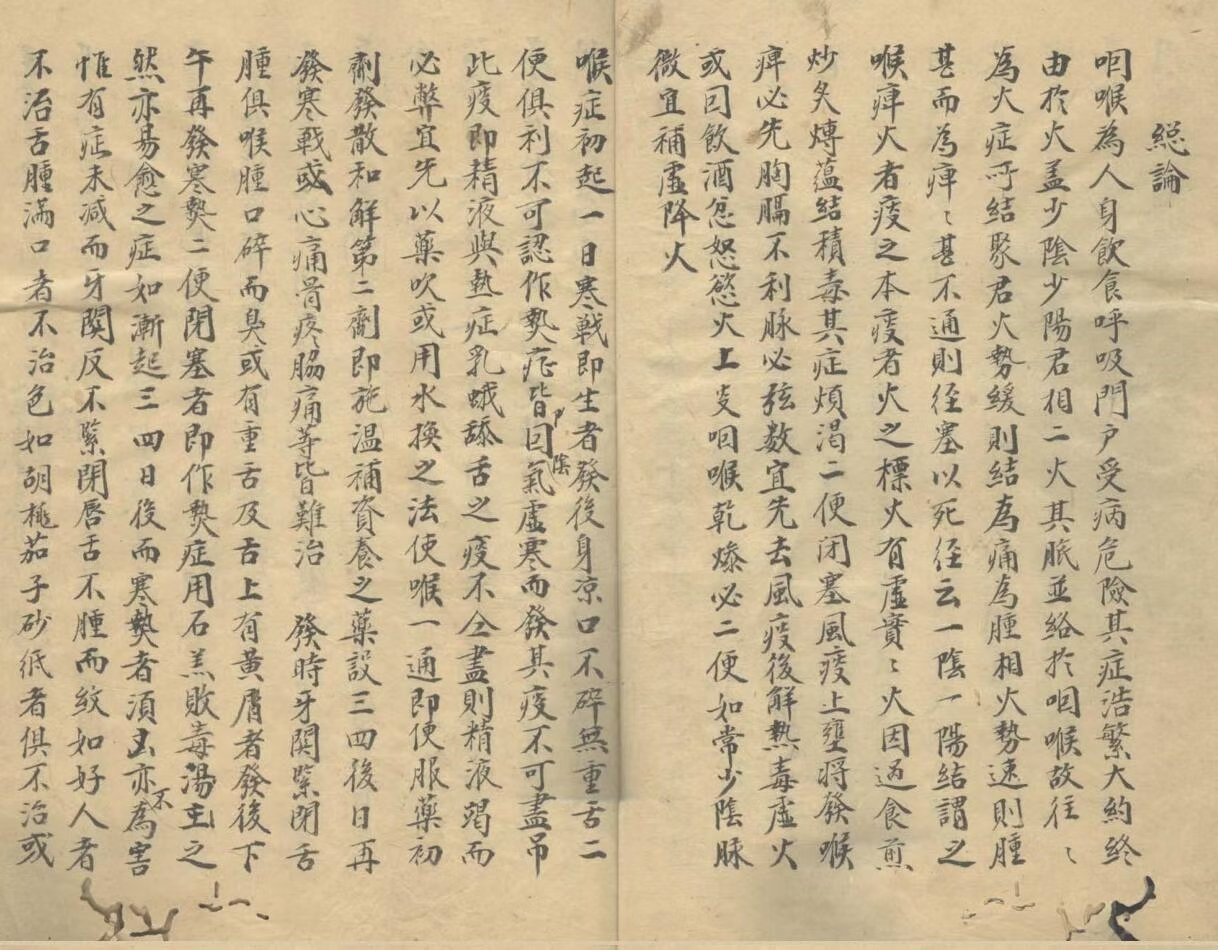 総論
咽喉為人身飲食呼吸門户受病危險其症浩繁大約終
由於火盖少陰少陽君相二火其脈並絡於咽喉故往々
為火症所結聚君火勢緩則結為痛為腫相火勢速則腫
甚而為痺々甚不通則径塞以死径云一陰一陽結謂之
喉痺火者痰之本痰者火之標火有虚實々火因過食煎
炒炙煿蘊結積毒其症煩渴二便闭塞風痰上壅將發喉
痺必先胸膈不利脉必弦数宜先去風痰後解热毒虚火
或因飲酒忿怒慾火上炎咽喉乾燥必二便如常少陰脉
微宜補虚降火
喉症初起一日寒戦即生者發後身凉口不碎無重舌二
便俱利不可認作熱症皆因陰氣虚寒而發其痰不可盡吊
此痰即精液與熱症乳蛾舔舌之痰不仝盡則精液竭而
必弊宜先以藥吹或用水換之法使喉一通即便服藥初
劑發散和解第二劑即施温補資養之藥設三四後日再
發寒戰或心痛骨疼脇痛等皆難治　發時牙関緊闭舌
腫俱喉腫口碎而臭或有重舌及舌上有黄屑者發後下
午再發寒熱二便閉塞者即作熱症用石羔敗毒湯主之
然亦易愈之症如漸起三四日後而寒熱者須出亦不為害
惟有症未减而牙関反不緊閉唇舌不腫而紋如好人者
不治舌腫滿口者不治色如胡桃茄子砂纸者俱不治或